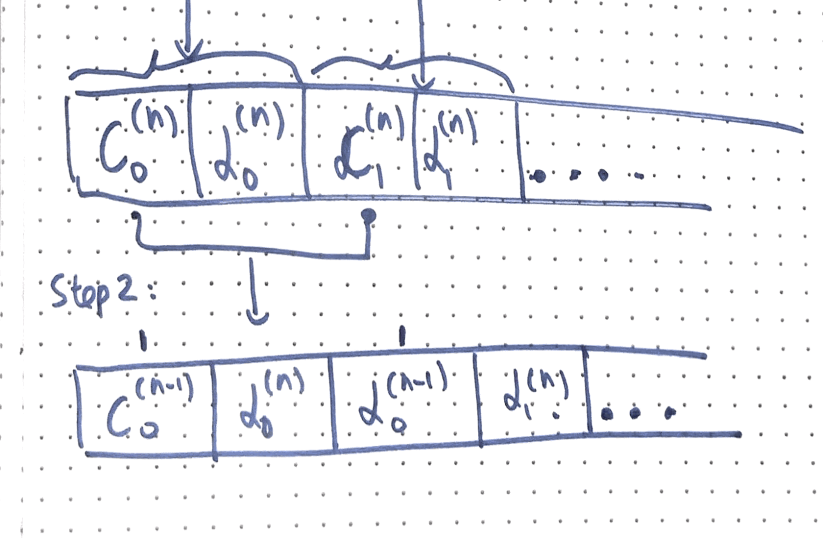 C₀⁽ⁿ⁾ d₀⁽ⁿ⁾ C₁⁽ⁿ⁾ d₁⁽ⁿ⁾ ....
Step 2:
C₀⁽ⁿ⁻¹⁾ d₀⁽ⁿ⁾ d₀⁽ⁿ⁻¹⁾ d₁⁽ⁿ⁾ ...